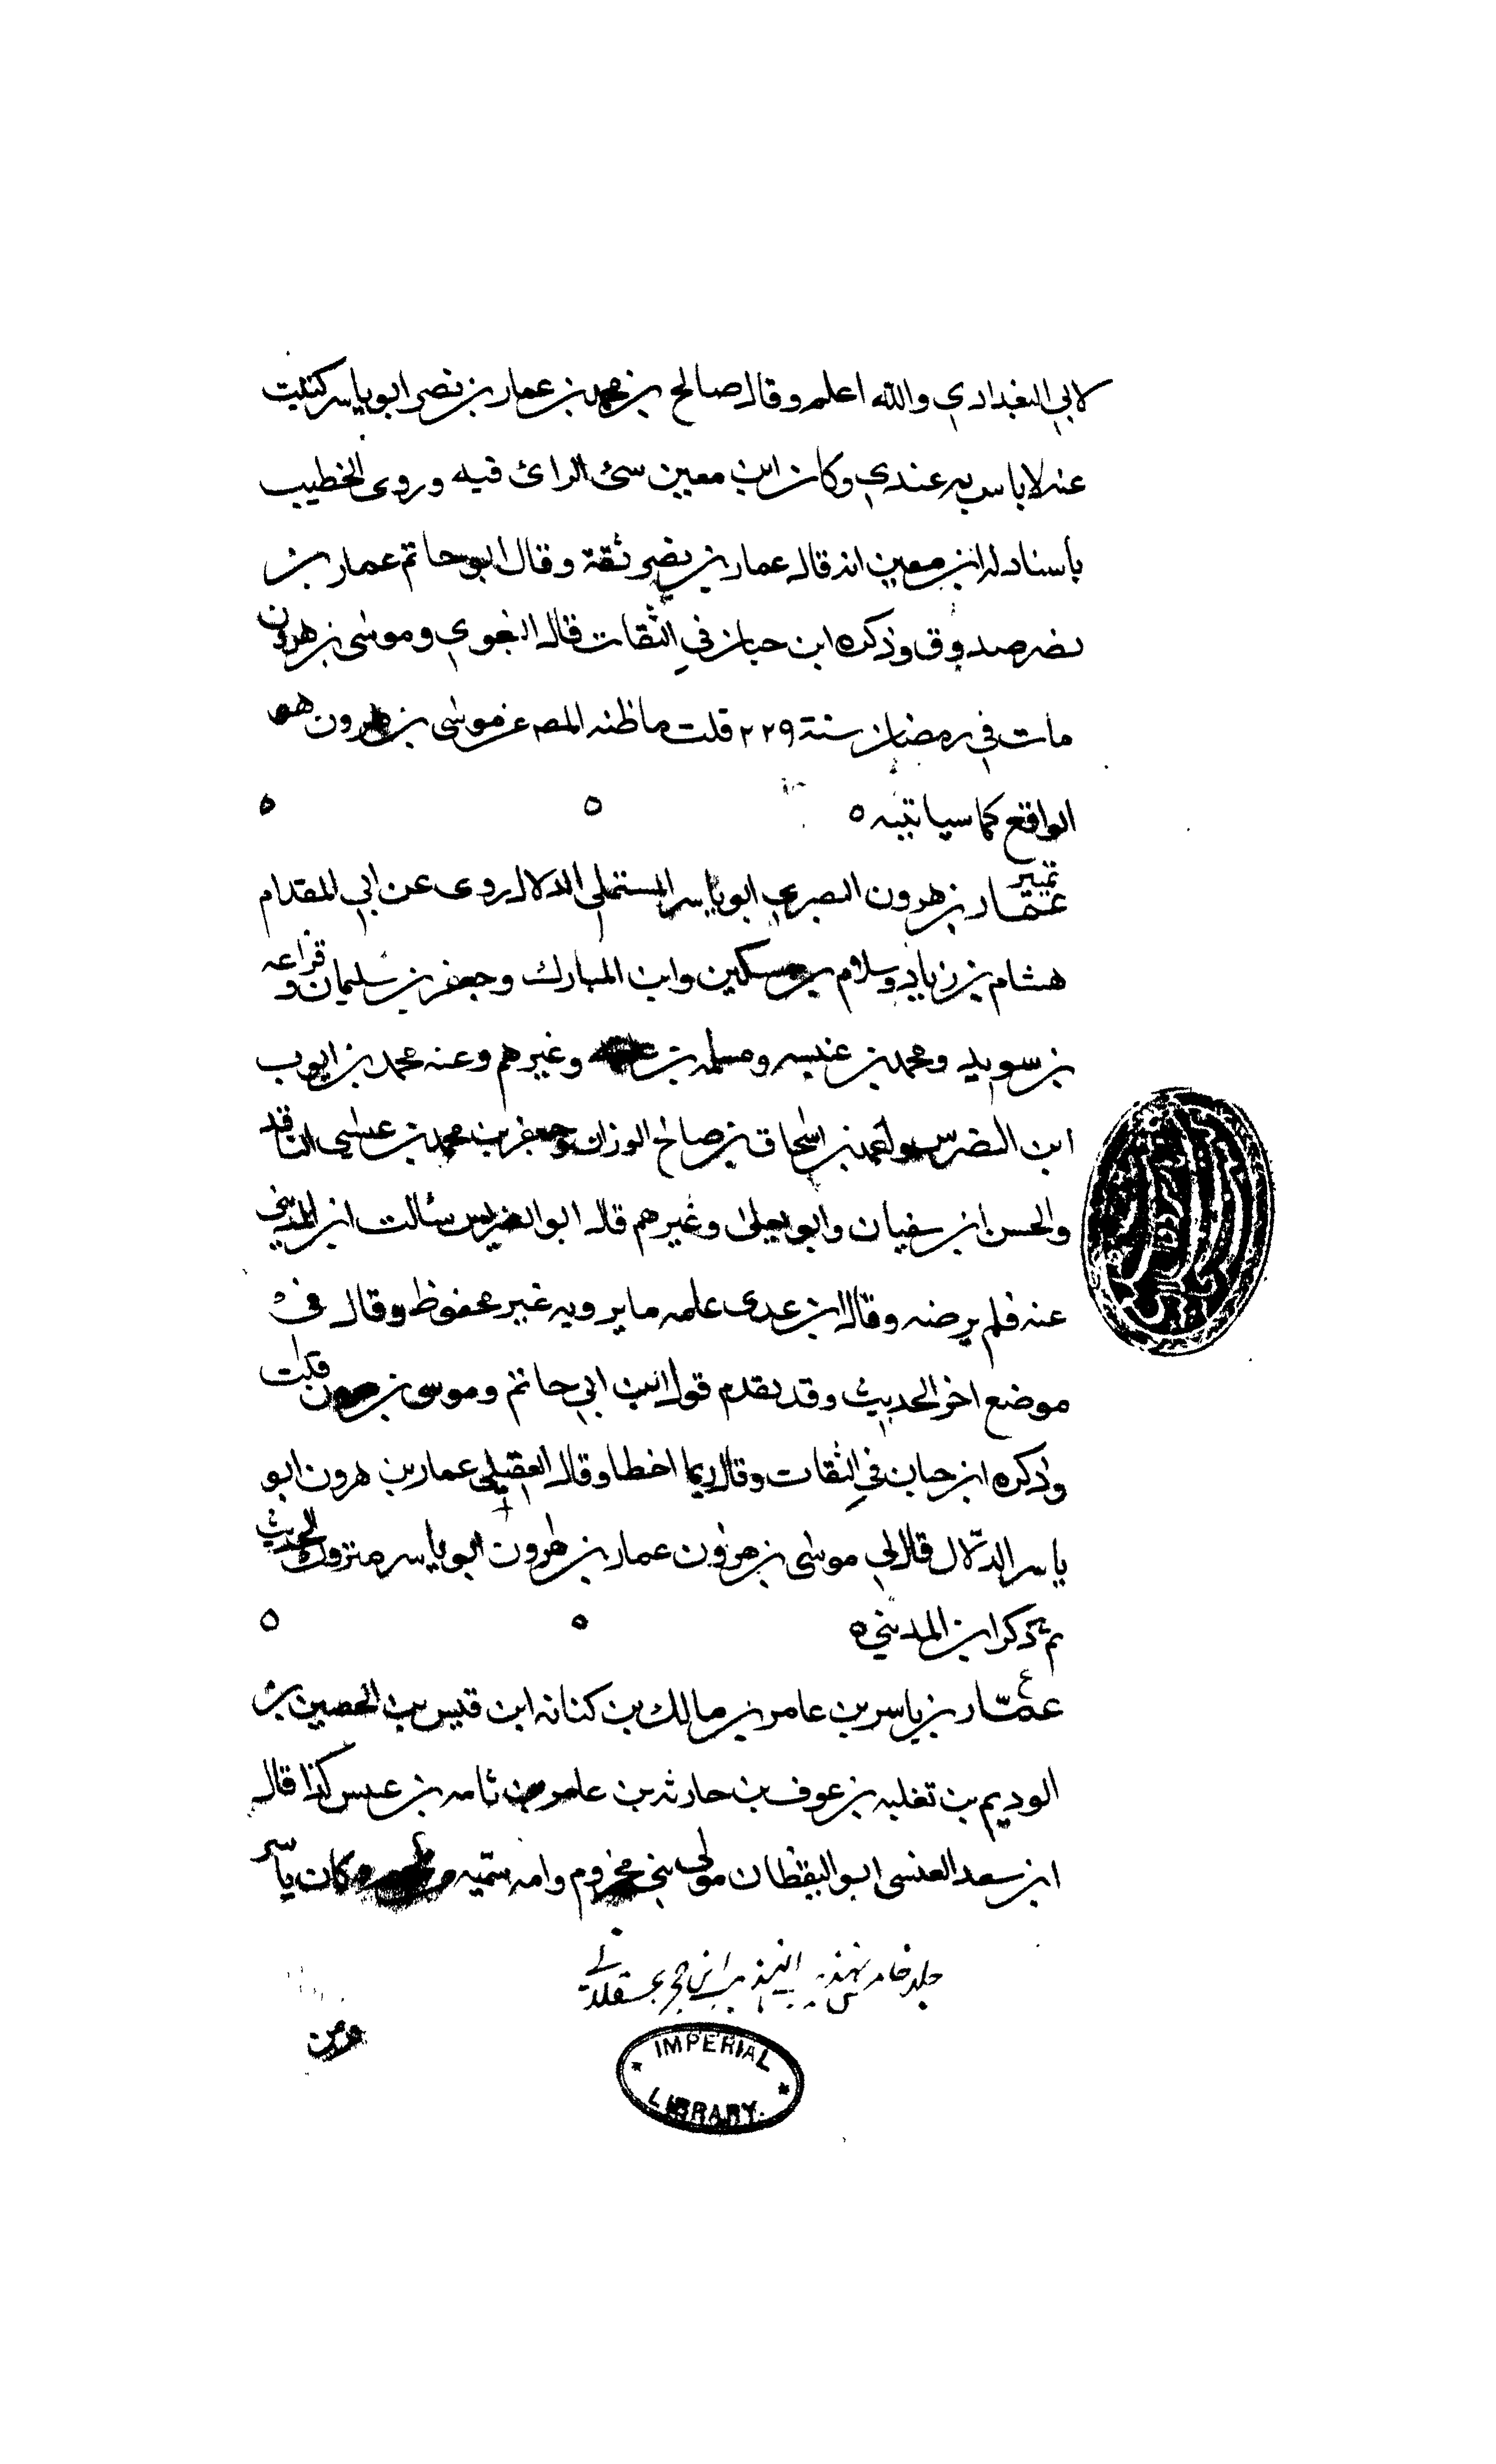 لابي البغدادي والله اعلم وقال صالح بن محمد بن عمار بن نصر ابو ياسر كتبت
عنه لا باس به عندي وكان ابن معين سئ الرائ فيه وروى الخطيب
باسناد له ابن معين انه قال عمار بن نصر ثقة وقال ابو حاتم عمار بن
نصر صدوق وذكره ابن حبان في الثقات قال البغوي وموسى بن هرون
مات في رمضان سنة ٢٢٩ قلت ماظنه المص عن موسى بن هرون هو
الواقع كما سياتيه ٥ ٥ ٥
تمييز
عمار بن هرون البصري ابو ياسر المستملي الدلال روى عن ابي المقدام
هشام بن زياد وسلام بن مسكين وابن المبارك وجعفر بن سليمان وقزاعه
بن سويد ومحمد بن عنبسه ومسلمه بن وغيرهم وعنه محمد بن ايوب
ابن الضرس ومحمد بن اسحاق بن صالح الوزان وجعفر بن محمد بن عيسى الناقد
والحسن ابن سفيان وابو يعلى وغيرهم قال ابو الضريس سالت ابن المديني
عنه فلم يرضه وقال ابن عدى علمه ما يرويه غير محفوظ وقال في
موضع اخر الحديث وقد تقدم قول ابن ابي حاتم وموسى بن هرون قلت
وذكره ابن حبان في الثقات وقال ربما اخطا وقال العقيلي عمار بن هرون ابو
ياسر الدلال قال لي موسى بن هرون عمار بن هرون ابو ياسر متروك الحديث
ثم ذكر ابن المديني ٥ ٥ ٥
ع
عمّار بن ياسر بن عامر بن مالك بن كنانه ابن قيس بن الحصين بن
الوديم بن تغلبه بن عوف بن حارثه بن عامر بن نامه بن عبس كذا قال
ابن سعد العنسى ابو اليقظان مولى بني مخزوم وامه سميه وكان ياسر
جلد خامس تهذيب التهذيب ابن حجر عسقلاني
IMPERIAL
LIBRARY.